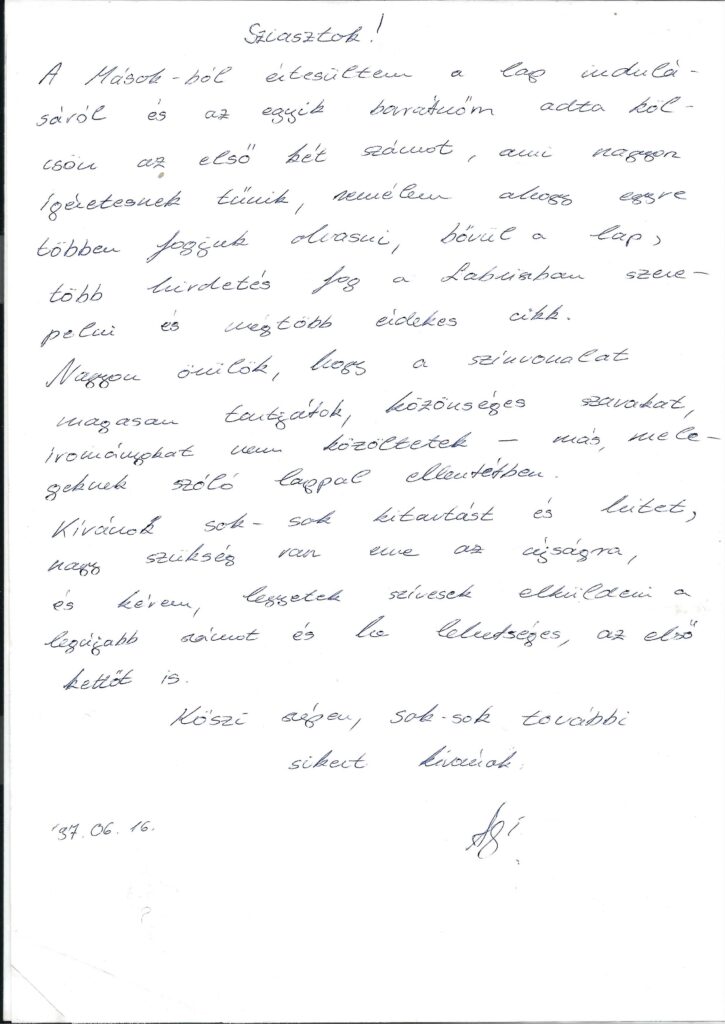 Sziasztok!
A Mások-ból értesültem a lap indulá-
sáról és az egyik barátnőm adta köl-
csön az első két számot, ami nagyon
ígéretesnek tűnik, remélem ahogy egyre
többen fogjuk olvasni, bővül a lap,
több hirdetés fog a Labriszban szere-
pelni és mégtöbb érdekes cikk.
Nagyon örülök, hogy a színvonalat
magasan tartjátok, közönséges szavakat,
irományokat nem közöltetek – más, mele-
geknek szóló lappal ellentétben.
Kívánok sok-sok kitartást és hitet,
nagy szükség van erre az újságra,
és kérem, legyetek szívesek elküldeni a
legújabb számot és ha lehetséges, az első
kettőt is.
Köszi szépen, sok-sok további
sikert kívánok.
'97.06.16.
Ági